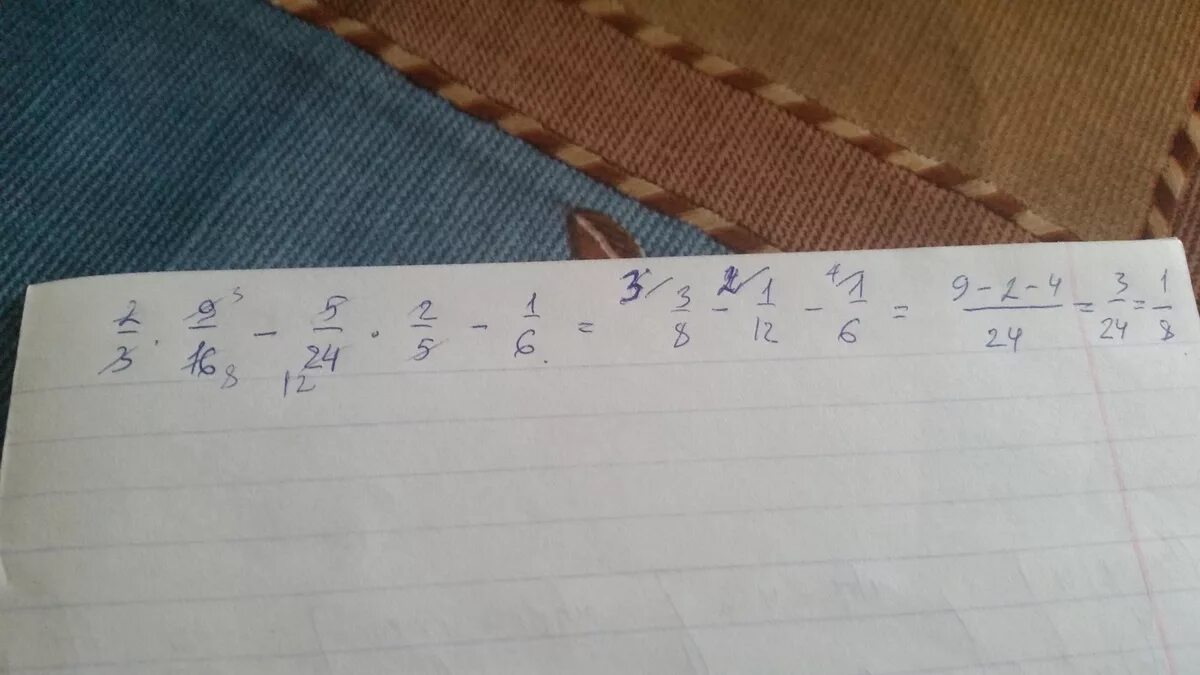 2/3 · 9/16 - 5/24 · 2/5 - 1/6 = 3/8 - 1/12 - 1/6 = (9-2-4)/24 = 3/24 = 1/8